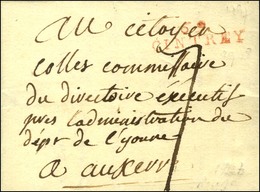 Au citoyen
colles commissaire
du directoire éxécutif
pres l'administration du
dépt de l'yonne
a auxerre